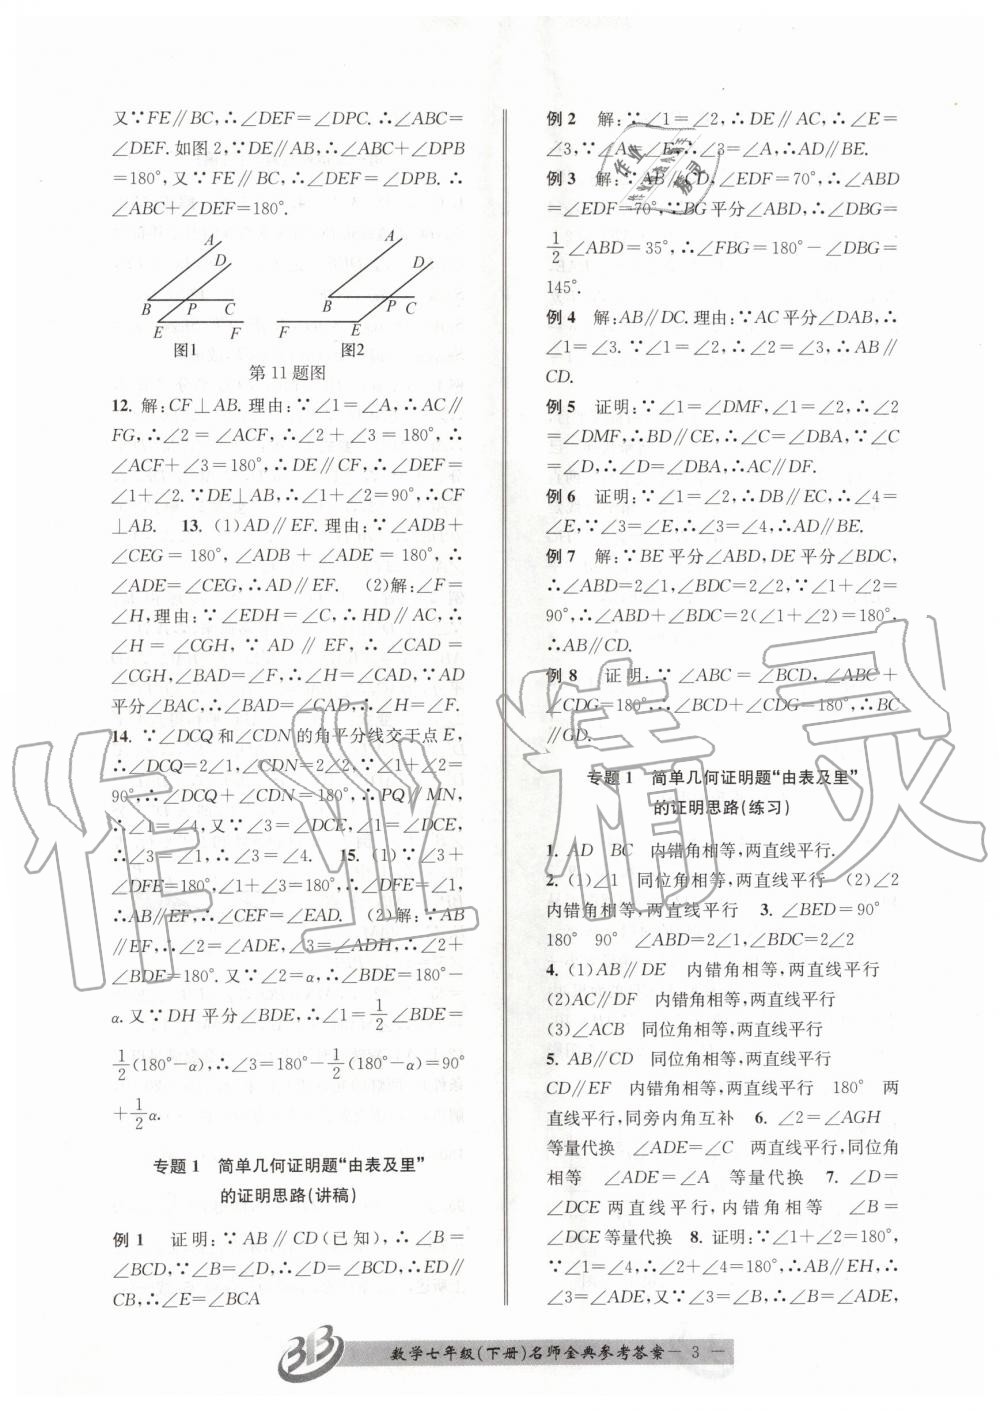 又∵FE∥BC,∴∠DEF=∠DPC.∴∠ABC=
∠DEF.如图2,∵DE∥AB,∴∠ABC+∠DPB
=180°,又∵FE∥BC,∴∠DEF=∠DPB.∴
∠ABC+∠DEF=180°.
A
D
B P C
E F
图1
A
D
B P C
F E
图2
第11题图
12. 解:CF⊥AB.理由:∵∠1=∠A,∴AC∥
FG,∴∠2=∠ACF,∴∠2+∠3=180°,∴
∠ACF+∠3=180°,∴DE∥CF,∴∠DEF=
∠1+∠2.∵DE⊥AB,∴∠1+∠2=90°,∴CF
⊥AB. 13. (1)AD∥EF.理由:∵∠ADB+
∠CEG=180°,∠ADB+∠ADE=180°,∴
∠ADE=∠CEG,∴AD∥EF. (2)解:∠F=
∠H,理由:∵∠EDH=∠C,∴HD∥AC,∴
∠H=∠CGH,∵AD∥EF,∴∠CAD=
∠CGH,∠BAD=∠F,∴∠H=∠CAD,∵AD
平分∠BAC,∴∠BAD=∠CAD,∴∠H=∠F.
14. ∵∠DCQ和∠CDN的角平分线交于点E,
∴∠DCQ=2∠1,∠CDN=2∠2.∵∠1+∠2=
90°,∴∠DCQ+∠CDN=180°,∴PQ∥MN,
∴∠1=∠4,又∵∠3=∠DCE,∠1=∠DCE,
∴∠3=∠1,∴∠3=∠4. 15. (1)∵∠3+
∠DFE=180°,∠1+∠3=180°,∴∠DFE=∠1,
∴AB∥EF,∴∠CEF=∠EAD. (2)解:∵AB
∥EF,∴∠2=∠ADE,∠3=∠ADH,∴∠2+
∠BDE=180°.又∵∠2=α,∴∠BDE=180°-
α.又∵DH平分∠BDE,∴∠1=1/2∠BDE=
1/2(180°-α),∴∠3=180°-1/2(180°-α)=90°
+1/2α.
专题1 简单几何证明题“由表及里”
的证明思路(讲稿)
例1 证明:∵AB∥CD(已知),∴∠B=
∠BCD,∵∠B=∠D,∴∠D=∠BCD,∴ED∥
CB,∴∠E=∠BCA
例2 解:∵∠1=∠2,∴DE∥AC,∴∠E=
∠3,∵∠A=∠E,∴∠3=∠A,∴AD∥BE.
例3 解:∵AB∥CD,∠EDF=70°,∴∠ABD
=∠EDF=70°,∵BG平分∠ABD,∴∠DBG=
1/2∠ABD=35°,∴∠FBG=180°-∠DBG=
145°.
例4 解:AB∥DC.理由:∵AC平分∠DAB,∴
∠1=∠3.∵∠1=∠2,∴∠2=∠3,∴AB∥
CD.
例5 证明:∵∠1=∠DMF,∠1=∠2,∴∠2
=∠DMF,∴BD∥CE,∴∠C=∠DBA,∵∠C
=∠D,∴∠D=∠DBA,∴AC∥DF.
例6 证明:∵∠1=∠2,∴DB∥EC,∴∠4=
∠E,∵∠3=∠E,∴∠3=∠4,∴AD∥BE.
例7 解:∵BE平分∠ABD,DE平分∠BDC,
∴∠ABD=2∠1,∠BDC=2∠2,∵∠1+∠2=
90°,∴∠ABD+∠BDC=2(∠1+∠2)=180°,
∴AB∥CD.
例8 证明:∵∠ABC=∠BCD,∠ABC+
∠CDG=180°,∴∠BCD+∠CDG=180°,∴BC
∥GD.
专题1 简单几何证明题“由表及里”
的证明思路(练习)
1. AD BC 内错角相等,两直线平行.
2. (1)∠1 同位角相等,两直线平行 (2)∠2
内错角相等,两直线平行 3. ∠BED=90°
180° 90° ∠ABD=2∠1,∠BDC=2∠2
4. (1)AB∥DE 内错角相等,两直线平行
(2)AC∥DF 内错角相等,两直线平行
(3)∠ACB 同位角相等,两直线平行
5. AB∥CD 同位角相等,两直线平行
CD∥EF 内错角相等,两直线平行 180° 两
直线平行,同旁内角互补 6. ∠2=∠AGH
等量代换 ∠ADE=∠C 两直线平行,同位角
相等 ∠ADE=∠A 等量代换 7. ∠D=
∠DCE 两直线平行,内错角相等 ∠B=
∠DCE等量代换 8. 证明:∵∠2+∠3=180°,
∵∠1=∠4,∴∠2+∠4=180°,∴AB∥EH,∴
∠3=∠ADE,又∵∠3=∠B,∴∠B=∠ADE,
数学七年级(下册)名师金典参考答案—3—
作业精灵